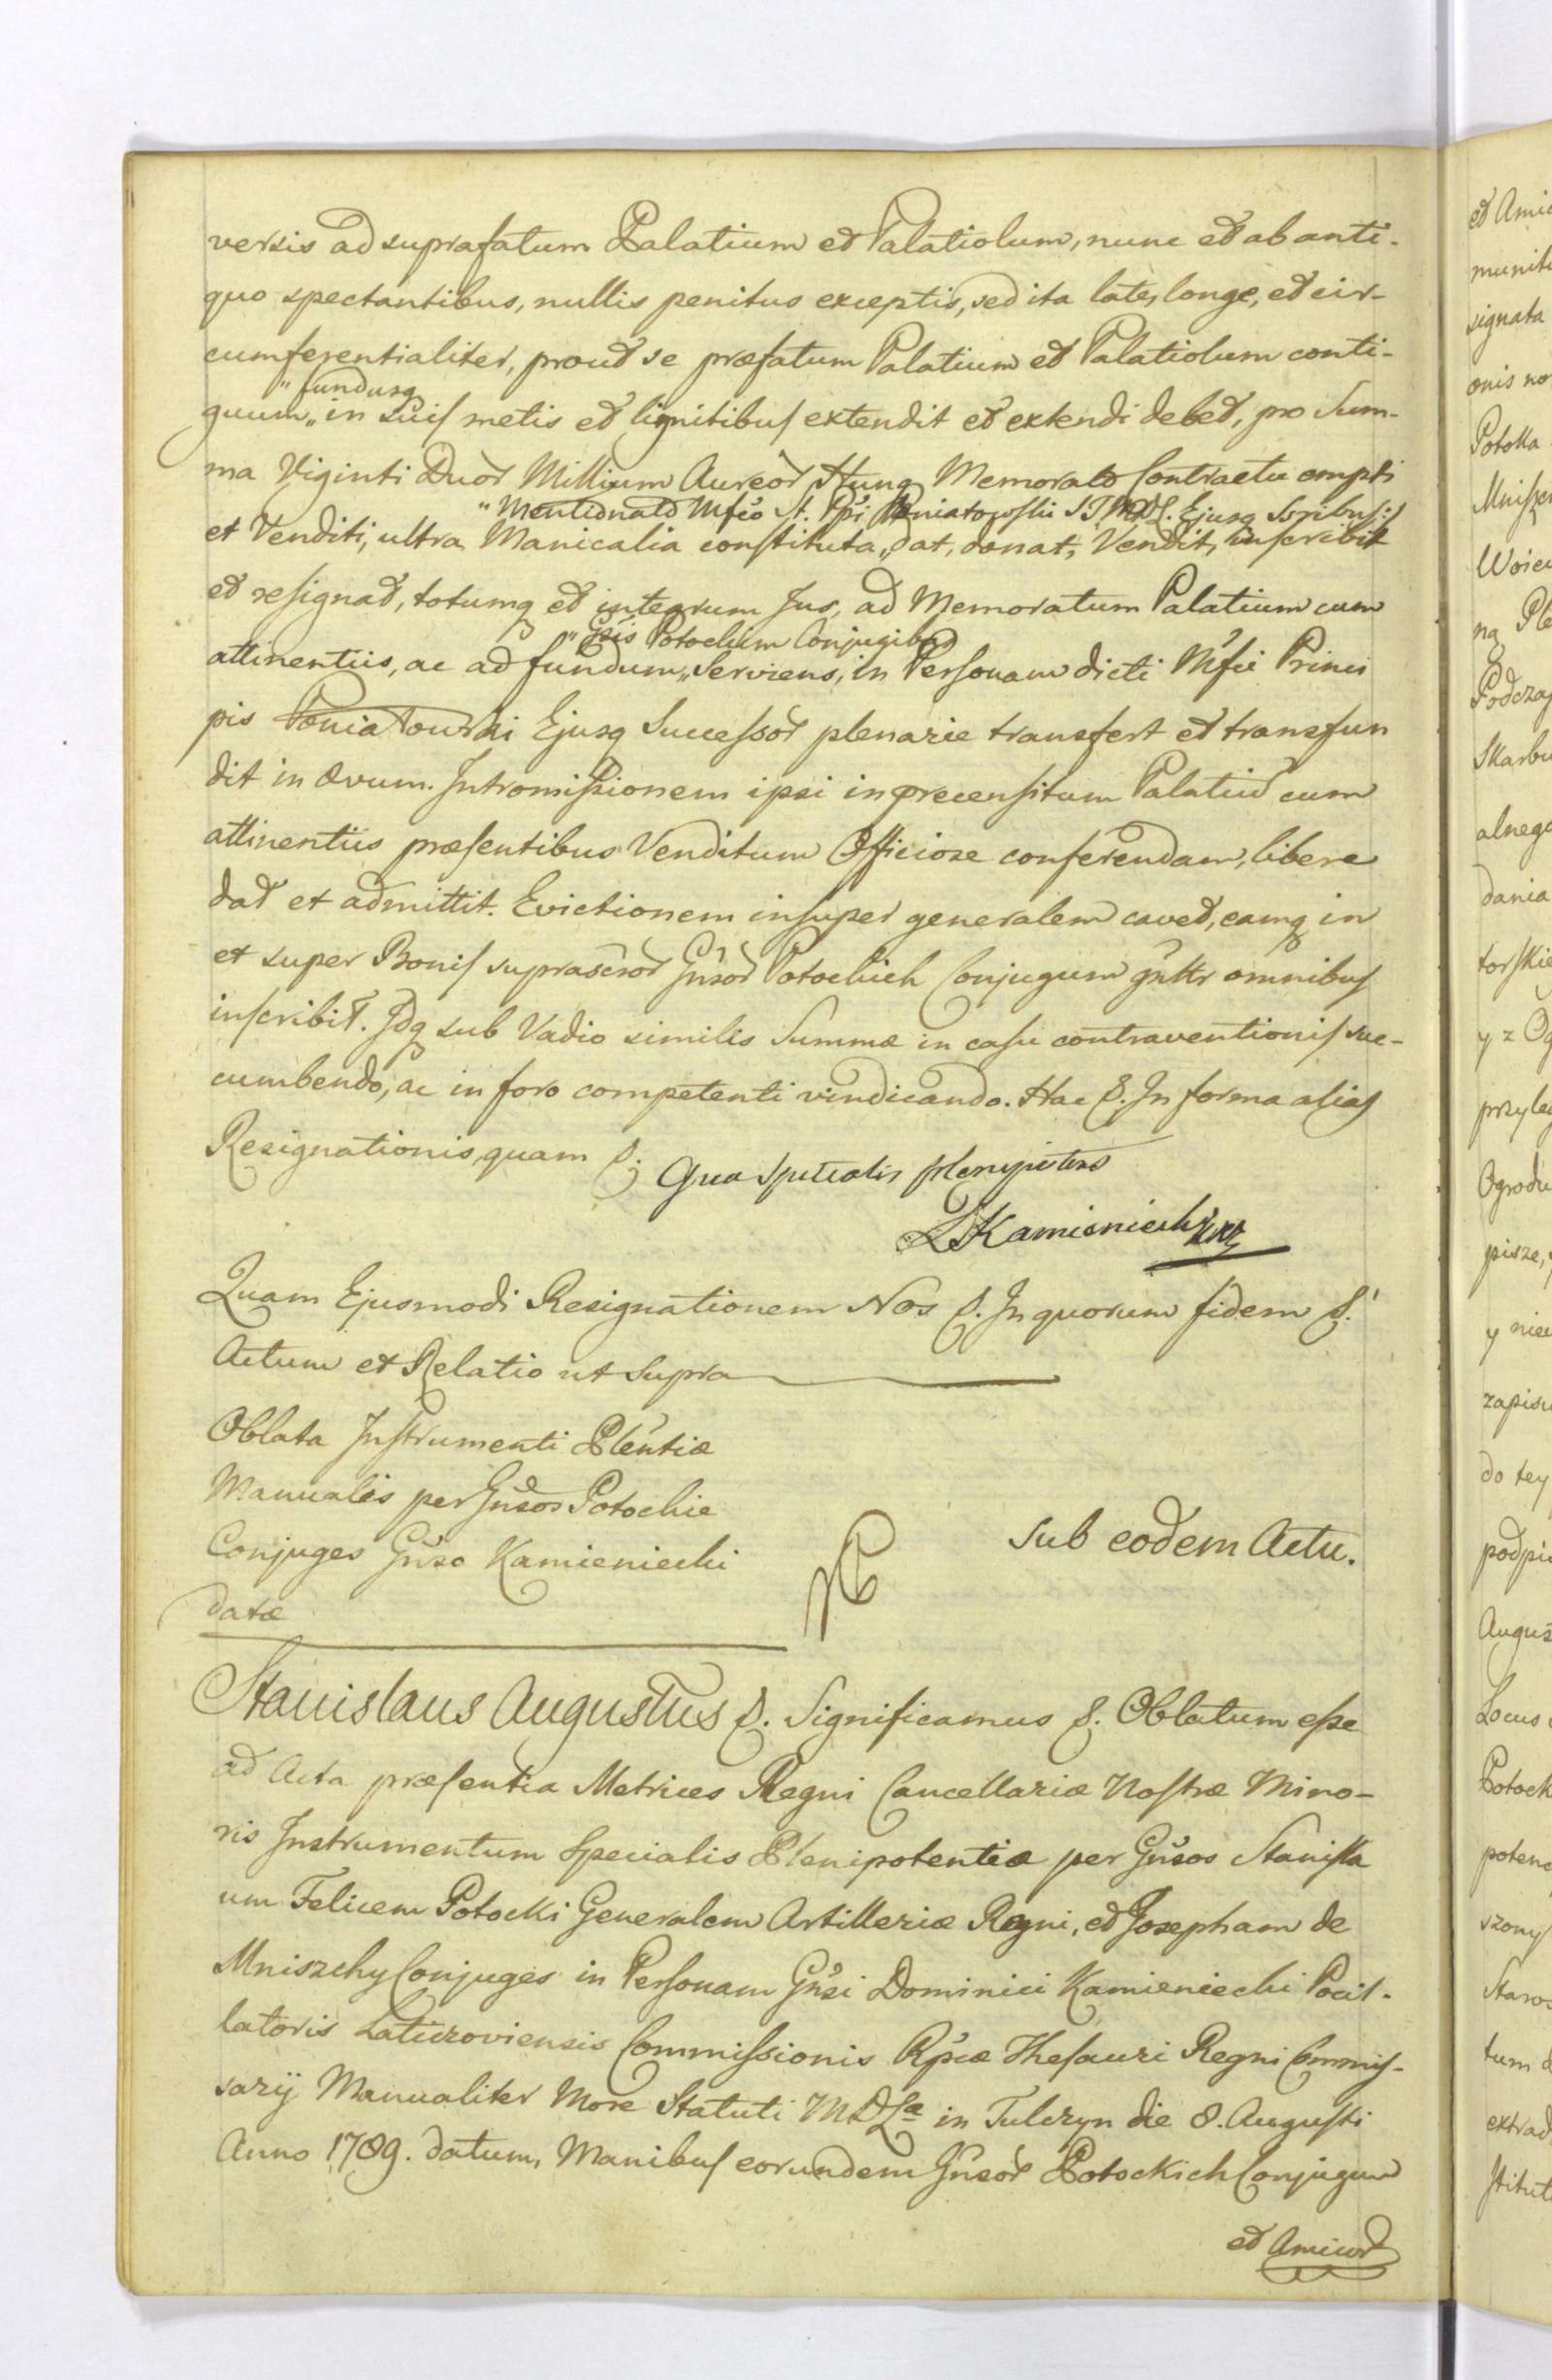 versis ad suprafatum Palatium et Palatiolum, nunc et ab anti-
quo spectantibus, nullis penitus exceptis, sed ita late, longe, et cir-
cumferentialiter, prout se præfatum Palatium et Palatiolum conti-
" fundusq
guum „ in suis metis et limitibus extendit et extendi debet, pro Sum-
ma Viginti Duor Millium Aureor Hung Memorato Contractu empti
" Mentionato Mfco St. Ppi Poniatowski S T M D L. Ejusq
et Venditi, ultra Manicalia constituta „ dat, donat, Vendit, inscribit
et resignat, totumq et integrum Jus, ad Memoratum Palatium cum
" Gsis Potockim Conjugibus
attinentiis, ac ad fundum „ Serviens, in Personam dicti Mfci Princi
pis Poniatowski Ejusq Successor plenarie transfert et transfun
dit in ævum. Intromissionem ipsi in præcensitum Palatiū cum
attinentiis præsentibus Venditum Officiose conferendam, libere
dat et admittit. Evictionem insuper generalem cavet, eamq in
et super Bonis suprascror Gnsor Potockich Conjugum gnltr omnibus
inscribit. Idq sub Vadio similis Summæ in casu contraventionis suc-
cumbendo, ac in foro competenti vindicando. Hac &. In forma alias
Resignationis, quam &. Qua Specialis plenipotens
Kamieniecki
Quam Ejusmodi Resignationem Nos &. In quorum fidem &.
Actum et Relatio ut Supra
Oblata Instrumenti Plentiæ
Manualis per Gnsos Potockie
Conjuges Gnso Kamieniecki
datæ
Sub eodem Actu.
Stanislaus Augustus &. Significamus &. Oblatum esse
ad Acta præsentia Metrices Regni Cancellariæ Nostræ Mino-
ris Instrumentum Specialis Plenipotentiæ per Gnsos Stanisla
um Felicem Potocki Generalem Artilleriæ Regni, et Josepham de
Mniszchy Conjuges in Personam Gnsi Dominici Kamieniecki Pocil-
latoris Laticzoviensis Commissionis Rpcæ Thesauri Regni Commis-
sarij Manualiter More Statuti M D Læ in Tulczyn die 8. Augusti
Anno 1789. datum, Manibus eorundem Gnsor Potockich Conjugum
et Amicor
et Ami
munit
signata
onis no
Potocka
Mniszch
Woiew
nq Ple
Podczas
Skarbu
alneg
dania
torskie
y z Og
przyleg
Ogrodu
pisze,
y niew
zapisu
do tey
podpis
August
Locus
Potock
potenc
szony
Staros
tum
extrad
stitut